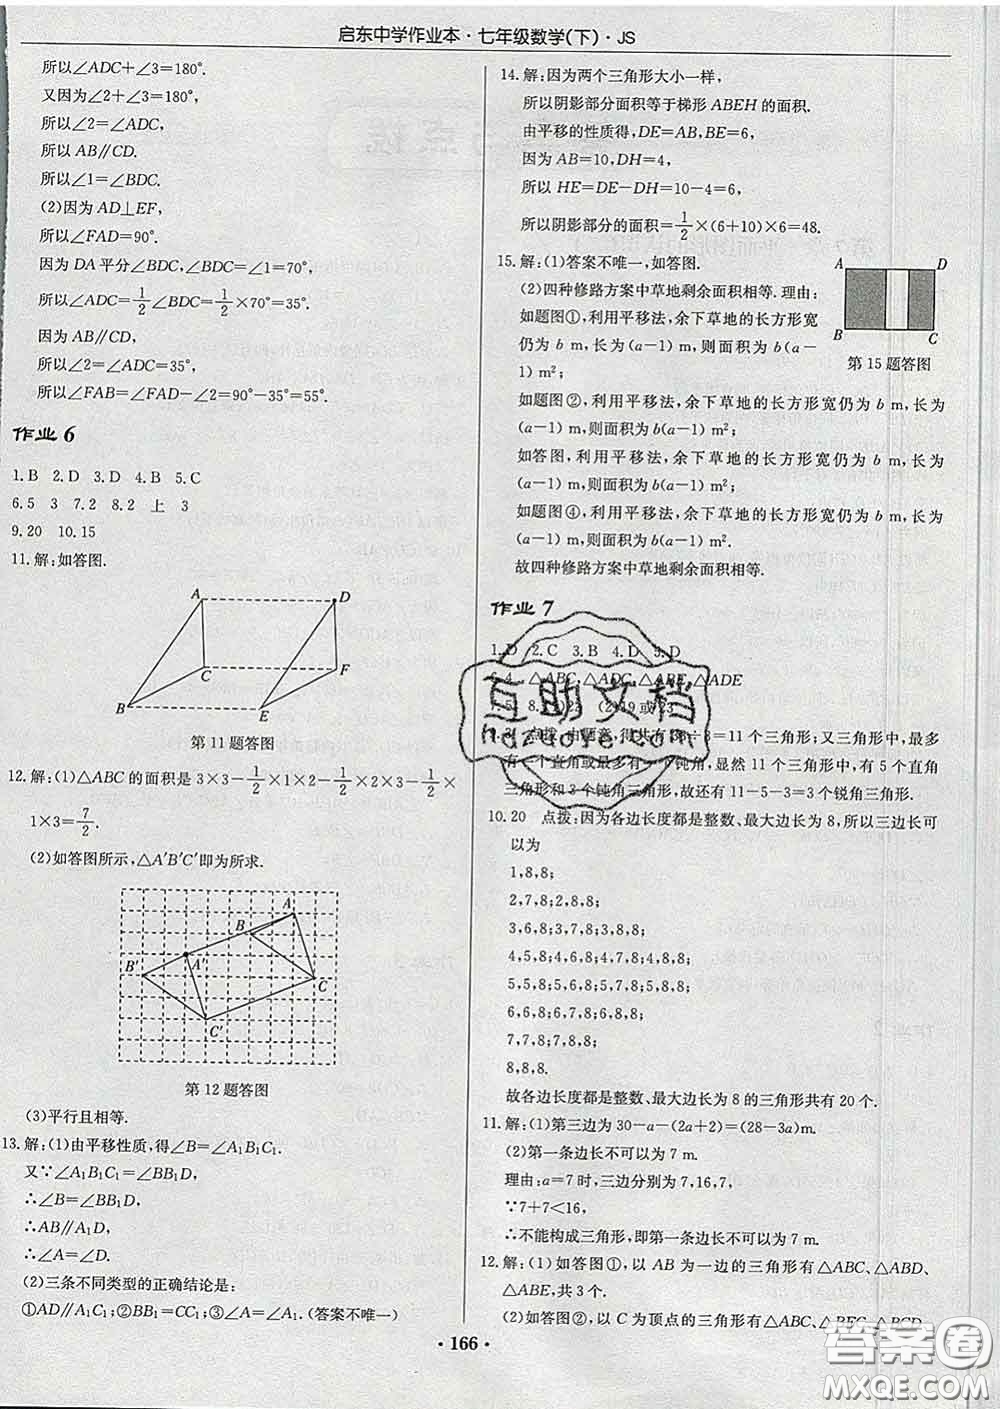 启东中学作业本·七年级数学(下)·JS
所以∠ADC+∠3=180°.
又因为∠2+∠3=180°,
所以∠2=∠ADC,
所以AB∥CD.
所以∠1=∠BDC.
(2)因为AD⊥EF,
所以∠FAD=90°.
因为DA平分∠BDC,∠BDC=∠1=70°,
所以∠ADC=1/2∠BDC=1/2×70°=35°.
因为AB∥CD,
所以∠2=∠ADC=35°,
所以∠FAB=∠FAD-∠2=90°-35°=55°.
作业6
1.B 2.D 3.D 4.B 5.C
6.5 3 7.2 8.2 上 3
9.20 10.15
11.解:如答图.
A D
C F
B E
第11题答图
12.解:(1)△ABC的面积是3×3-1/2×1×2-1/2×2×3-1/2×
1×3=7/2.
(2)如答图所示,△A′B′C′即为所求.
A
B
B′ A′ C
C′
第12题答图
(3)平行且相等.
13.解:(1)由平移性质,得∠B=∠A₁B₁C₁.
又∵∠A₁B₁C₁=∠BB₁D,
∴∠B=∠BB₁D,
∴AB∥A₁D,
∴∠A=∠D.
(2)三条不同类型的正确结论是:
①AD∥A₁C₁;②BB₁=CC₁;③∠A=∠A₁.(答案不唯一)
14.解:因为两个三角形大小一样,
所以阴影部分面积等于梯形ABEH的面积.
由平移的性质得,DE=AB,BE=6,
因为AB=10,DH=4,
所以HE=DE-DH=10-4=6,
所以阴影部分的面积=1/2×(6+10)×6=48.
15.解:(1)答案不唯一,如答图.
(2)四种修路方案中草地剩余面积相等.理由:
如题图①,利用平移法,余下草地的长方形宽
仍为b m,长为(a-1) m,则面积为b(a-
1) m²;
A D
B C
第15题答图
如题图②,利用平移法,余下草地的长方形宽仍为b m,长为
(a-1) m,则面积为b(a-1) m²;
如答图,利用平移法,余下草地的长方形宽仍为b m,长为
(a-1) m,则面积为b(a-1) m²;
如题图④,利用平移法,余下草地的长方形宽仍为b m,长为
(a-1) m,则面积为b(a-1) m².
故四种修路方案中草地剩余面积相等.
作业7
1.D 2.C 3.B 4.D 5.D
6.4 △ABC,△ADC,△ABE,△ADE
7.5 8.(1)23 (2)19或23
点拨:由题意,得共有33÷3=11个三角形;又三角形中,最多
有一个直角或最多有一个钝角,显然11个三角形中,有5个直角
三角形和3个钝角三角形,故还有11-5-3=3个锐角三角形.
10.20 点拨:因为各边长度都是整数、最大边长为8,所以三边长可
以为
1,8,8;
2,7,8;2,8,8;
3,6,8;3,7,8;3,8,8;
4,5,8;4,6,8;4,7,8;4,8,8;
5,5,8;5,6,8;5,7,8;5,8,8;
6,6,8;6,7,8;6,8,8;
7,7,8;7,8,8;
8,8,8.
故各边长度都是整数、最大边长为8的三角形共有20个.
11.解:(1)第三边为30-a-(2a+2)=(28-3a)m.
(2)第一条边长不可以为7 m.
理由:a=7时,三边分别为7,16,7,
∵7+7<16,
∴不能构成三角形,即第一条边长不可以为7 m.
12.解:(1)如答图①,以AB为一边的三角形有△ABC、△ABD、
△ABE,共3个.
(2)如答图②,以C为顶点的三角形有△ABC、△BEC、△BCD、
·166·
互助文档
hdzdore.com
答案圈
MXQE.COM